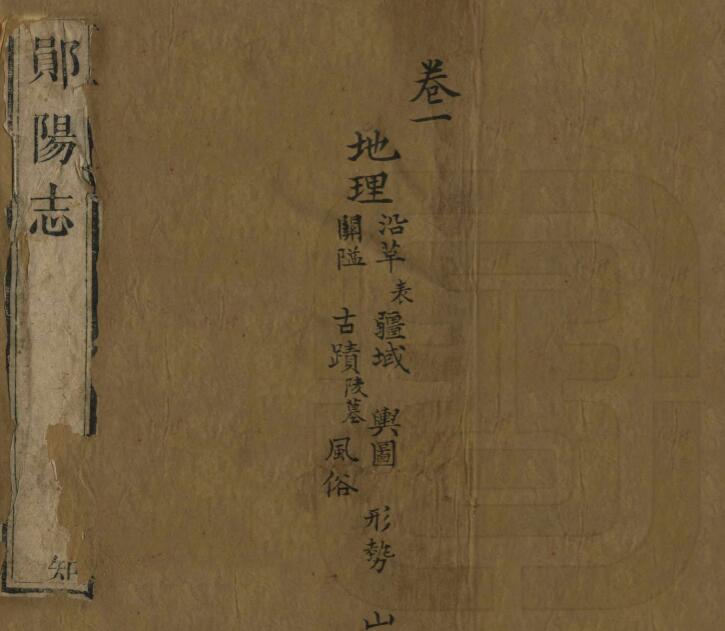 卷一
地理
沿革表 疆域 輿圖 形勢 山
關隘 古蹟陵墓 風俗
鄖陽志
知